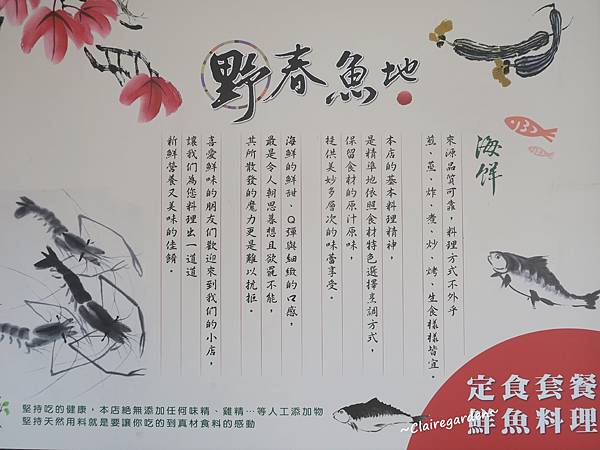 野春魚地
海鮮
來源品質可靠，料理方式不外乎
煎、蒸、炸、煮、炒、烤、生食樣樣皆宜。
本店的基本料理精神，
是精準地依照食材特色選擇烹調方式，
保留食材的原汁原味，
提供美妙多層次的味蕾享受。
海鮮的鮮甜、Q彈與細緻的口感，
最是令人朝思暮想且欲罷不能，
其所散發的魔力更是難以抗拒。
喜愛鮮味的朋友們歡迎來到我們的小店，
讓我們為您料理出一道道
新鮮營養又美味的佳餚。
定食套餐
鮮魚料理
堅持吃的健康，本店絕無添加任何味精、雞精…等人工添加物
堅持天然用料就是要讓你吃的到真材食料的感動
~Clairegarden~